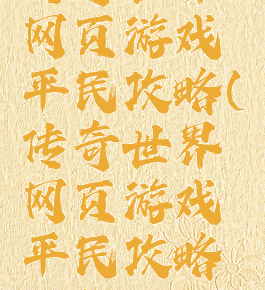 网页游戏
平民攻略(
传奇世界
网页游戏
平民攻略